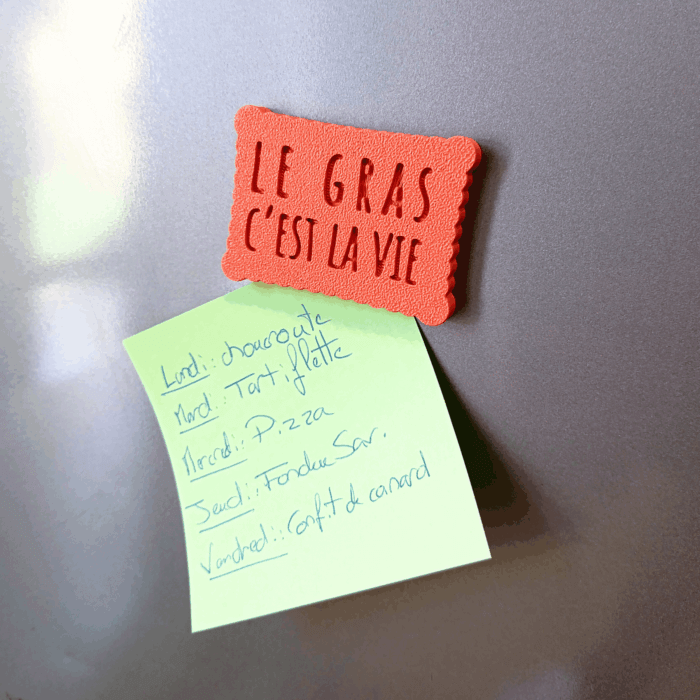 LE GRAS
C'EST LA VIE
Lundi : choucroute
Mardi : Tartiflette
Mercredi : Pizza
Jeudi : Fondue Sav.
Vendredi : Confit de canard